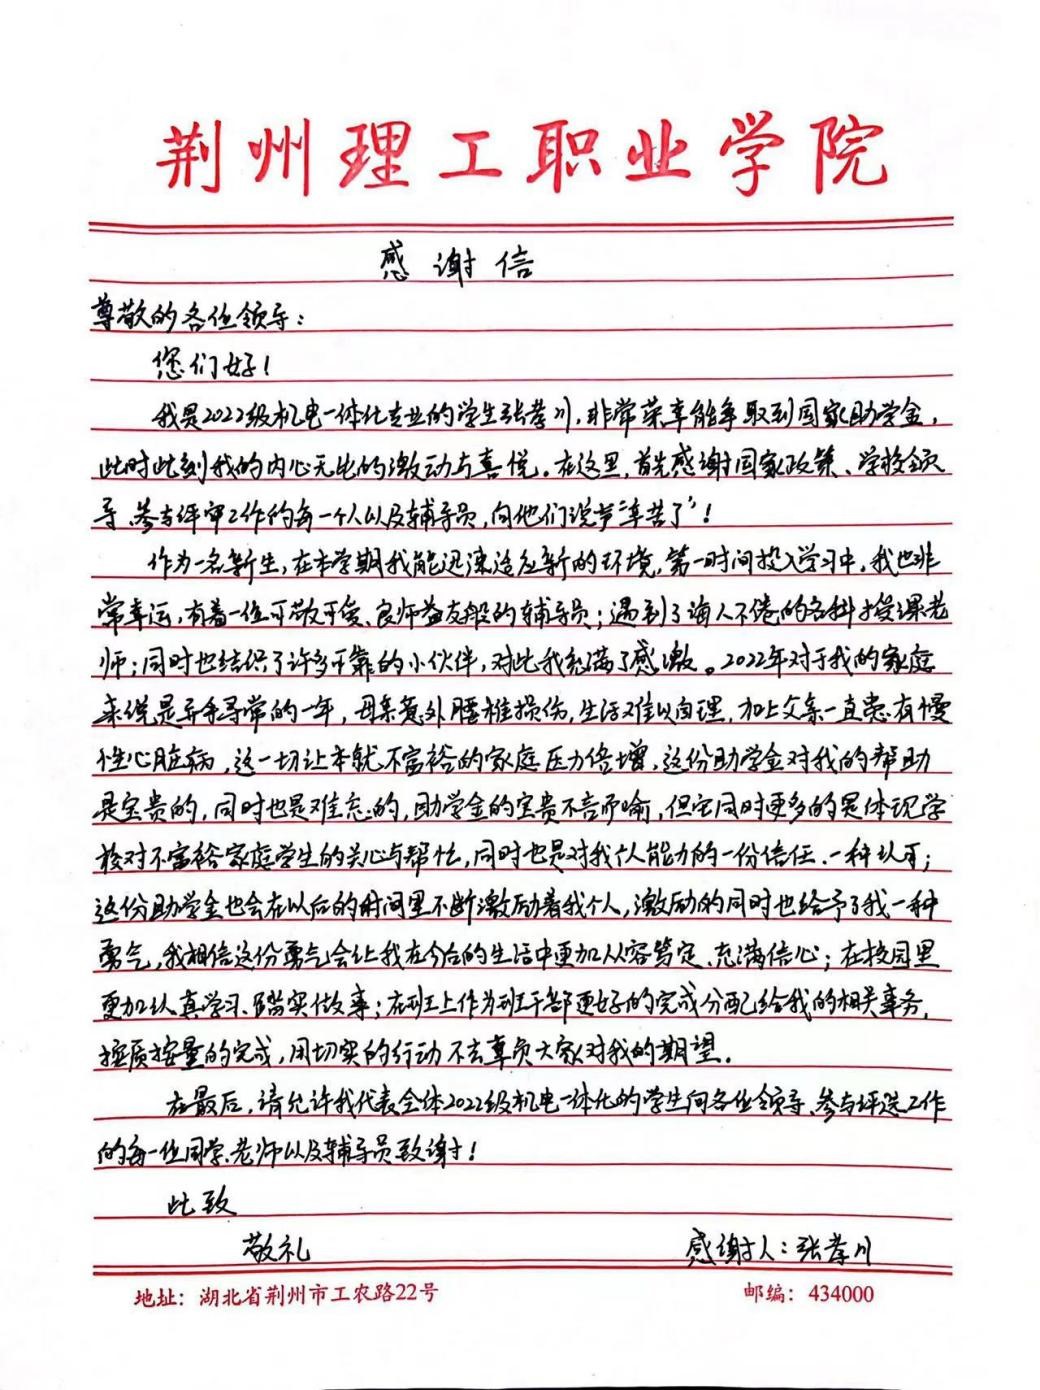 荆州理工职业学院
感谢信
尊敬的各位领导：
您们好！
我是2022级机电一体化专业的学生张孝川，非常荣幸能争取到国家助学金，
此时此刻我的内心无比的激动与喜悦。在这里，首先感谢国家政策、学校领
导、参与评审工作的每一个人以及辅导员，向他们说声“辛苦了”！
作为一名新生，在本学期我能迅速适应新的环境，第一时间投入学习中，我也非
常幸运，有着一位可敬可爱、良师益友般的辅导员；遇到了诲人不倦的各科授课老
师；同时也结识了许多可靠的小伙伴，对此我充满了感激。2022年对于我的家庭
来说是异乎寻常的一年，母亲意外腰椎损伤，生活难以自理，加上父亲一直患有慢
性心脏病，这一切让本就不富裕的家庭压力倍增，这份助学金对我的帮助
是宝贵的，同时也是难忘的，助学金的宝贵不言而喻，但它同时更多的是体现学
校对不富裕家庭学生的关心与帮忙，同时也是对我个人能力的一份信任、一种认可；
这份助学金也会在以后的时间里不断激励着我个人，激励的同时也给予了我一种
勇气，我相信这份勇气会让我在今后的生活中更加从容笃定、充满信心；在校园里
更加认真学习、踏实做事；在班上作为班干部更好的完成分配给我的相关事务，
按质按量的完成，用切实的行动不去辜负大家对我的期望。
在最后，请允许我代表全体2022级机电一体化的学生向各位领导、参与评选工作
的每一位同学、老师以及辅导员致谢！
此致
敬礼 感谢人：张孝川
地址：湖北省荆州市工农路22号 邮编：434000